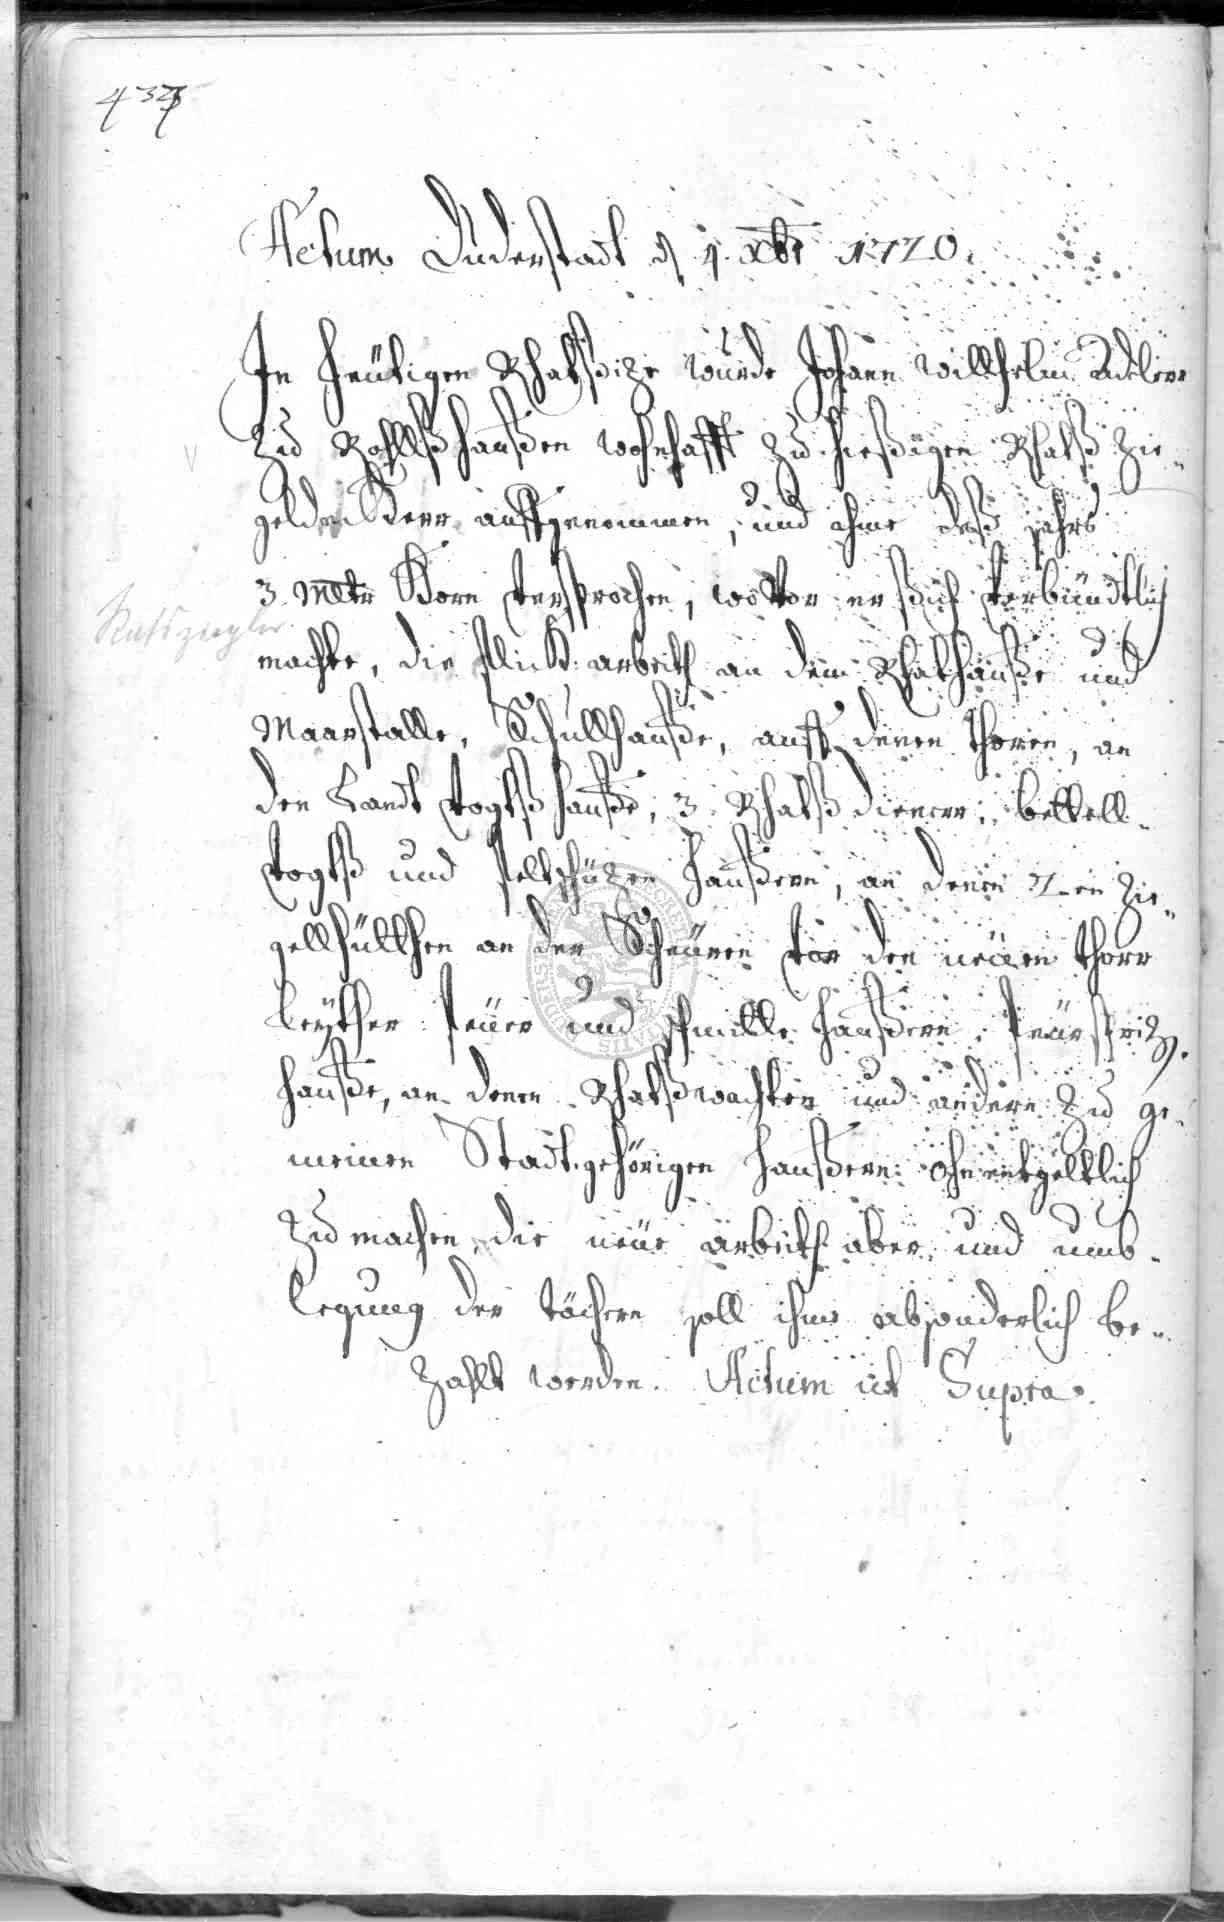 437
Actum Duderstadt d 4 Xbr 1720.
In heütigen Rhatßize wurde Johann Willhelm Adeler
zu Rollßhaußen wohnhafft zu hießigen Rhatß Zie-
geldeckern auffgenommen, und ihme deß jahrs
3 mltr Korn versprochen, wovor er sich verbündtlich
Ratsziegler
machte, die flick arbeith an dem Rhathauße und
Maarstalle, Schullhauße, auff denen thoren, an
den Landt vogtß hauße, 3 Rhatß dienere, bettell-
vogtß und feltschützen haußern, an denen 2en Zie-
gellhütthen an der Scheüren vor den neüen thorr
Leyther feüer und haußern, feürspritz-
hauße, an denen Rhatßwachten und andern zu ge-
meinen Stadt gehörigen haußern ohnentgeltlich
zu machen, die neüe arbeith aber und umb-
legung der tächern soll ihme absonderlich be-
zahlt werden. Actum ut Supra.